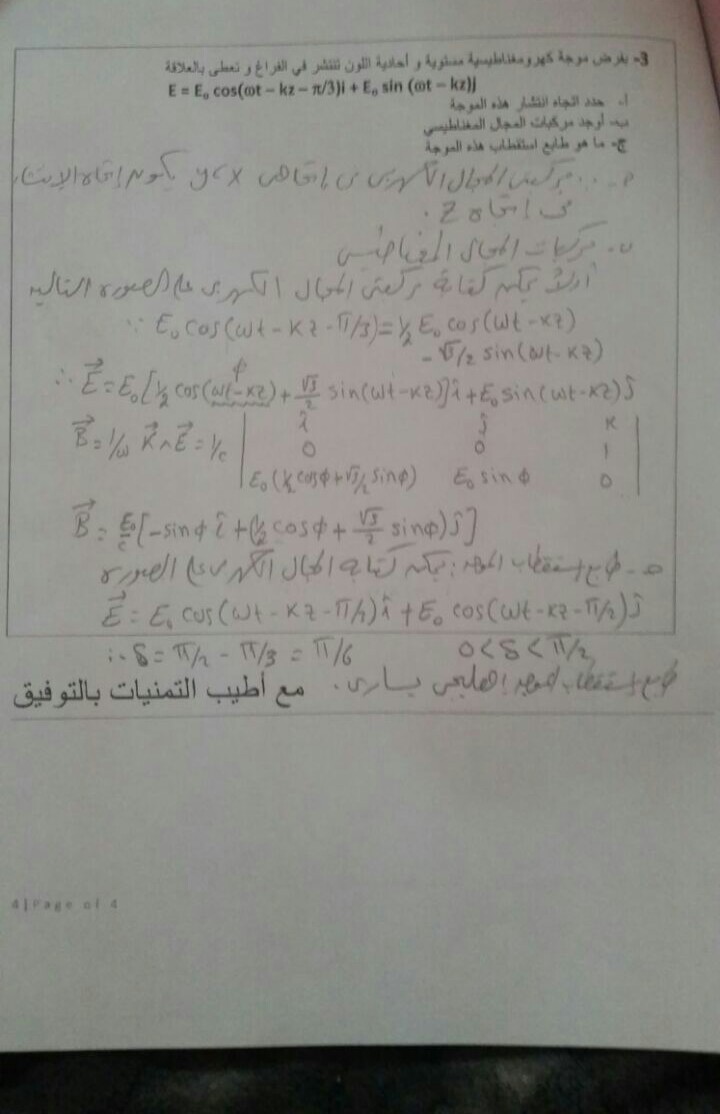 3- بفرض موجة كهرومغناطيسية مستوية و أحادية اللون تنتشر في الفراغ و تعطى بالعلاقة
E = E₀ cos(ωt – kz – π/3)i + E₀ sin (ωt – kz)j
أ- حدد اتجاه انتشار هذه الموجة
ب- أوجد مركبات المجال المغناطيسي
ج- ما هو طابع استقطاب هذه الموجة
مركبتى المجال الكهربى فى إتجاهى x و y يكون إتجاه الإنتشار
فى إتجاه z.
ب. مركبات المجال المغناطيسى
أولاً يمكن كتابة مركبتى المجال الكهربى على الصورة التاليه
∵ E₀ cos(ωt - kz - π/3) = 1/2 E₀ cos(ωt - kz)
- √3/2 sin(ωt - kz)
φ
∴ E⃗ = E₀[1/2 cos(ωt-kz) + √3/2 sin(ωt-kz)]î + E₀ sin(ωt-kz)ĵ
B⃗ = 1/ω K⃗ ∧ E⃗ = 1/c | î ĵ K
0 0 1
E₀(1/2 cosφ + √3/2 sinφ) E₀ sinφ 0 |
B⃗ = E₀/c [-sinφ î + (1/2 cosφ + √3/2 sinφ)ĵ]
طابع إستقطاب الموجه: يمكن كتابة المجال الكهربى على الصورة
E⃗ = E₀ cos(ωt - kz - π/3)î + E₀ cos(ωt - kz - π/2)ĵ
∴ δ = π/2 - π/3 = π/6 0 < δ < π/2
طابع إستقطاب الموجه إهليجى يسارى.
مع أطيب التمنيات بالتوفيق
4 | Page of 4